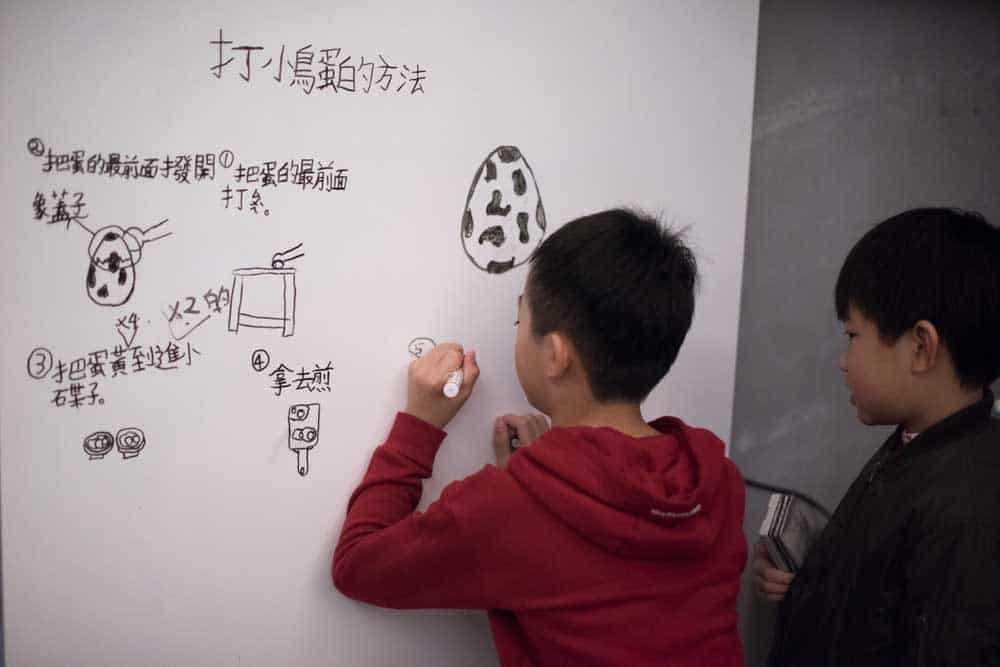 打小鳥蛋的方法
① 把蛋的最前面
打糸。
② 把蛋的最前面撥開
象蓋子
x4
x2 的
③ 把蛋黃到進小
碟子。
④ 拿去煎
⑤